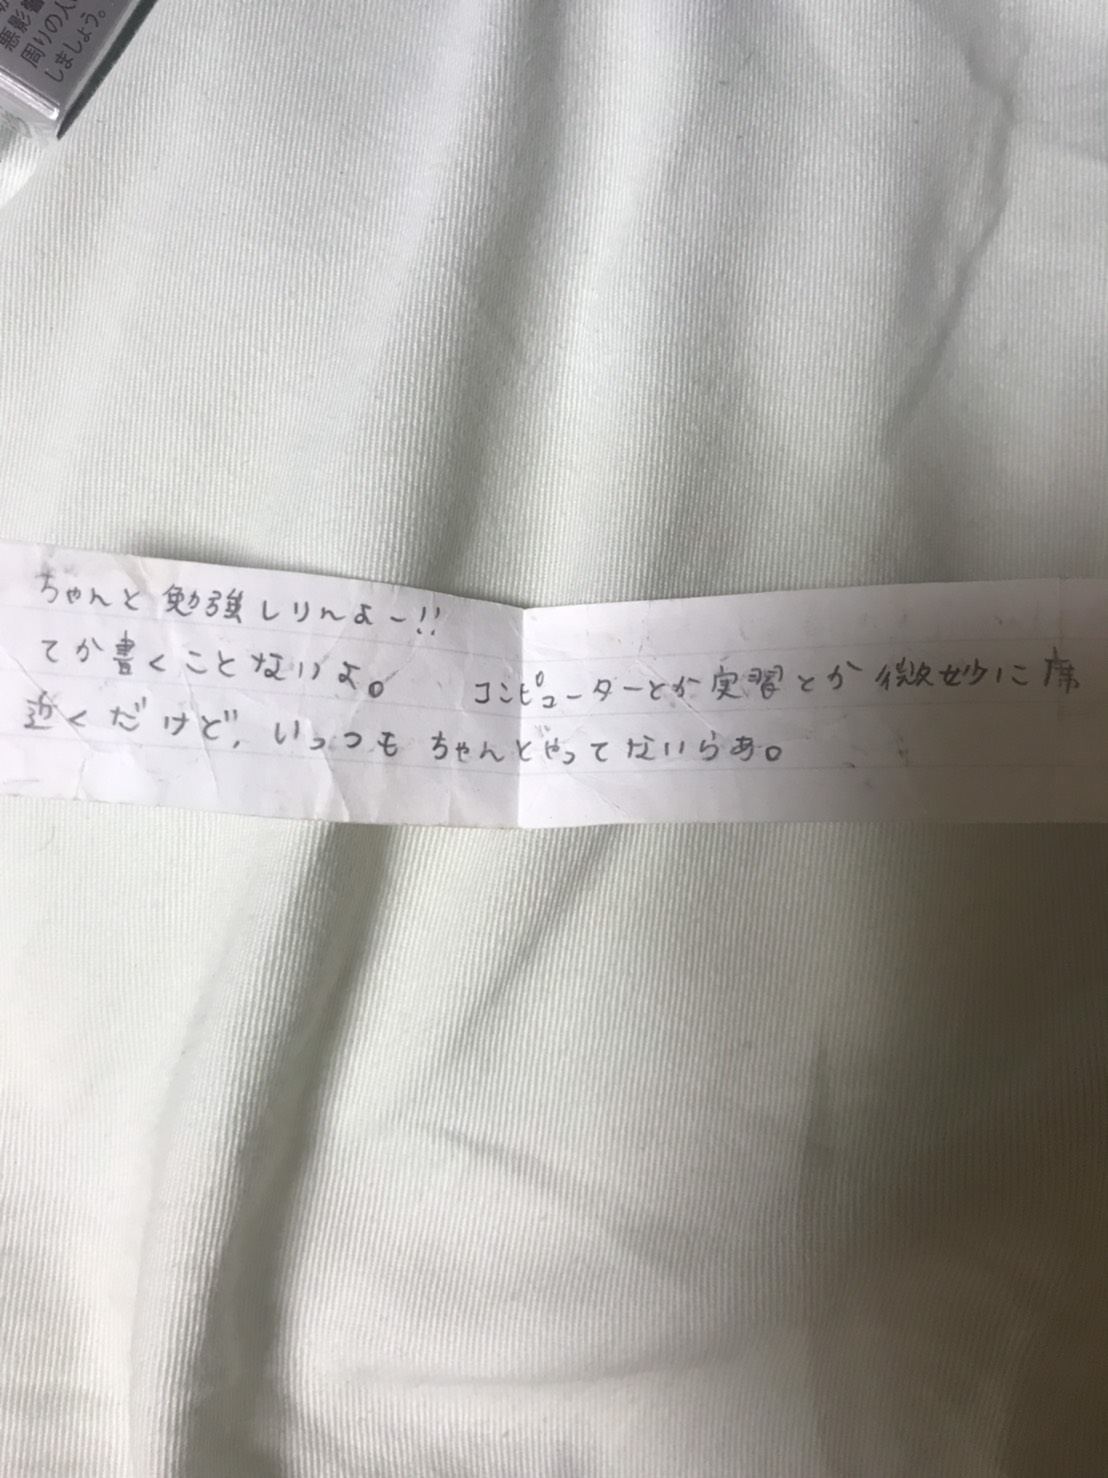 悪影響
周りの人
しましょう。
ちゃんと勉強しりんよー!!
てか書くことないよ。 コンピューターとか実習とか微妙に席
近くだけど、いっつもちゃんとやってないらあ。